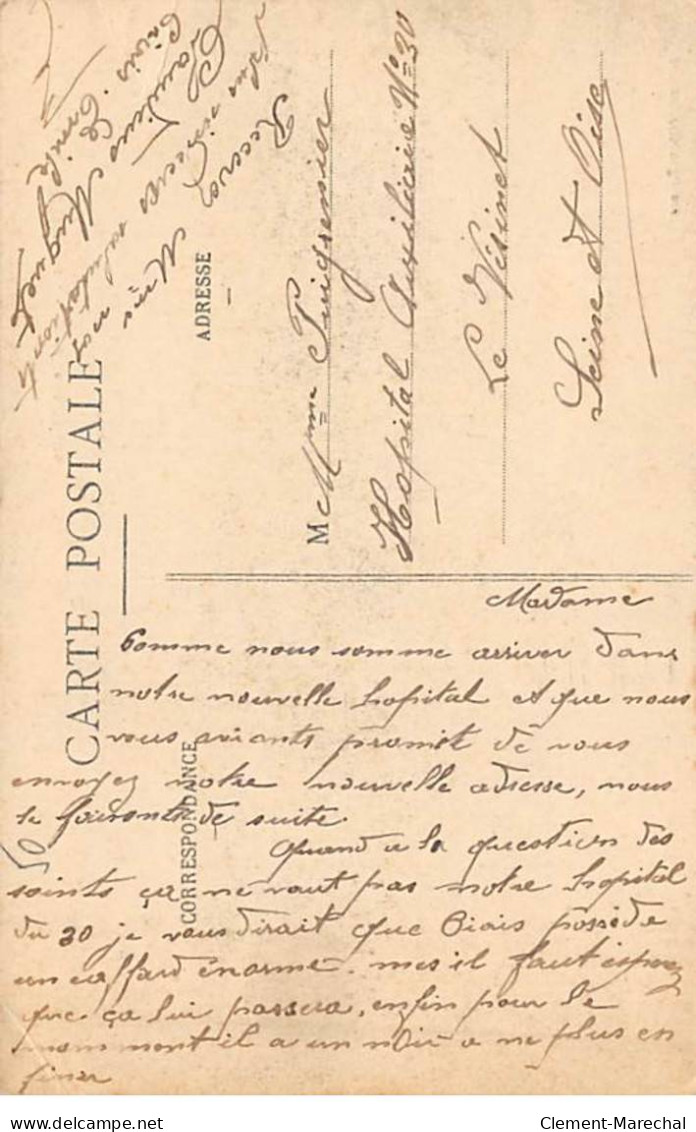 CARTE POSTALE
CORRESPONDANCE
ADRESSE
M me
Hopital Auxiliaire N° 30
Le Vésinet
Seine et Oise
Madame
Comme nous somme arriver dans
notre nouvelle hopital et que nous
vous avions promit de vous
envoyez notre nouvelle adresse, nous
le faisons de suite.
Quand a la question des
soints ça ne vaut pas notre hopital
du 30 je vous dirait que Biais possède
un caffard énorme. mes il faut espérez
que ça lui passera, enfin pour le
momment il a un noir a ne plus en
finir
Recevez Mes
plus sincères salutations
Muguet
Emile
Delcampe.net
Clement-Marechal